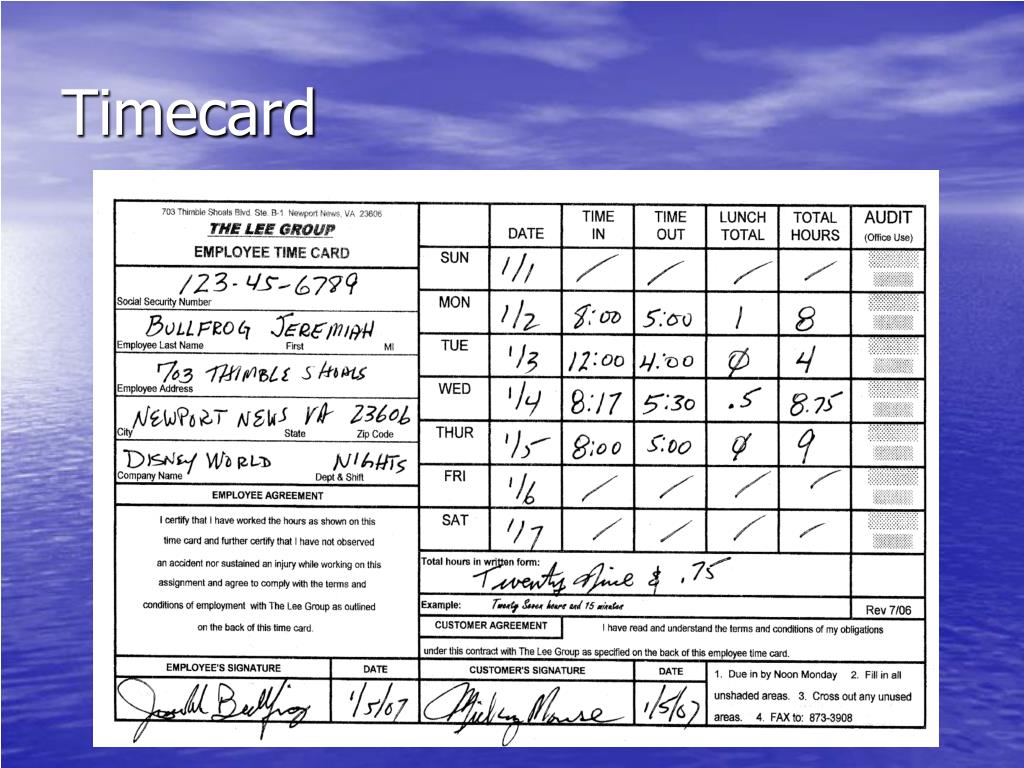 Timecard
703 Thimble Shoals Blvd. Ste. B-1 Newport News, VA 23606
THE LEE GROUP
EMPLOYEE TIME CARD
123-45-6789
Social Security Number
BULLFROG JEREMIAH
Employee Last Name First MI
703 THIMBLE SHOALS
Employee Address
NEWPORT NEWS VA 23606
City State Zip Code
DISNEY WORLD NIGHTS
Company Name Dept & Shift
EMPLOYEE AGREEMENT
I certify that I have worked the hours as shown on this
time card and further certify that I have not observed
an accident nor sustained an injury while working on this
assignment and agree to comply with the terms and
conditions of employment with The Lee Group as outlined
on the back of this time card.
EMPLOYEE'S SIGNATURE DATE
Bullfrog 1/5/07
DATE TIME IN TIME OUT LUNCH TOTAL TOTAL HOURS AUDIT (Office Use)
SUN 1/1 / / / /
MON 1/2 8:00 5:00 1 8
TUE 1/3 12:00 4:00 0 4
WED 1/4 8:17 5:30 .5 8.75
THUR 1/5 8:00 5:00 0 9
FRI 1/6 / / / /
SAT 1/7 / / / /
Total hours in written form:
Twenty Nine & .75
Example: Twenty Seven hours and 15 minutes
Rev 7/06
CUSTOMER AGREEMENT I have read and understand the terms and conditions of my obligations
under this contract with The Lee Group as specified on the back of this employee time card.
CUSTOMER'S SIGNATURE DATE
Mickey Mouse 1/5/07
1. Due in by Noon Monday 2. Fill in all
unshaded areas. 3. Cross out any unused
areas. 4. FAX to: 873-3908